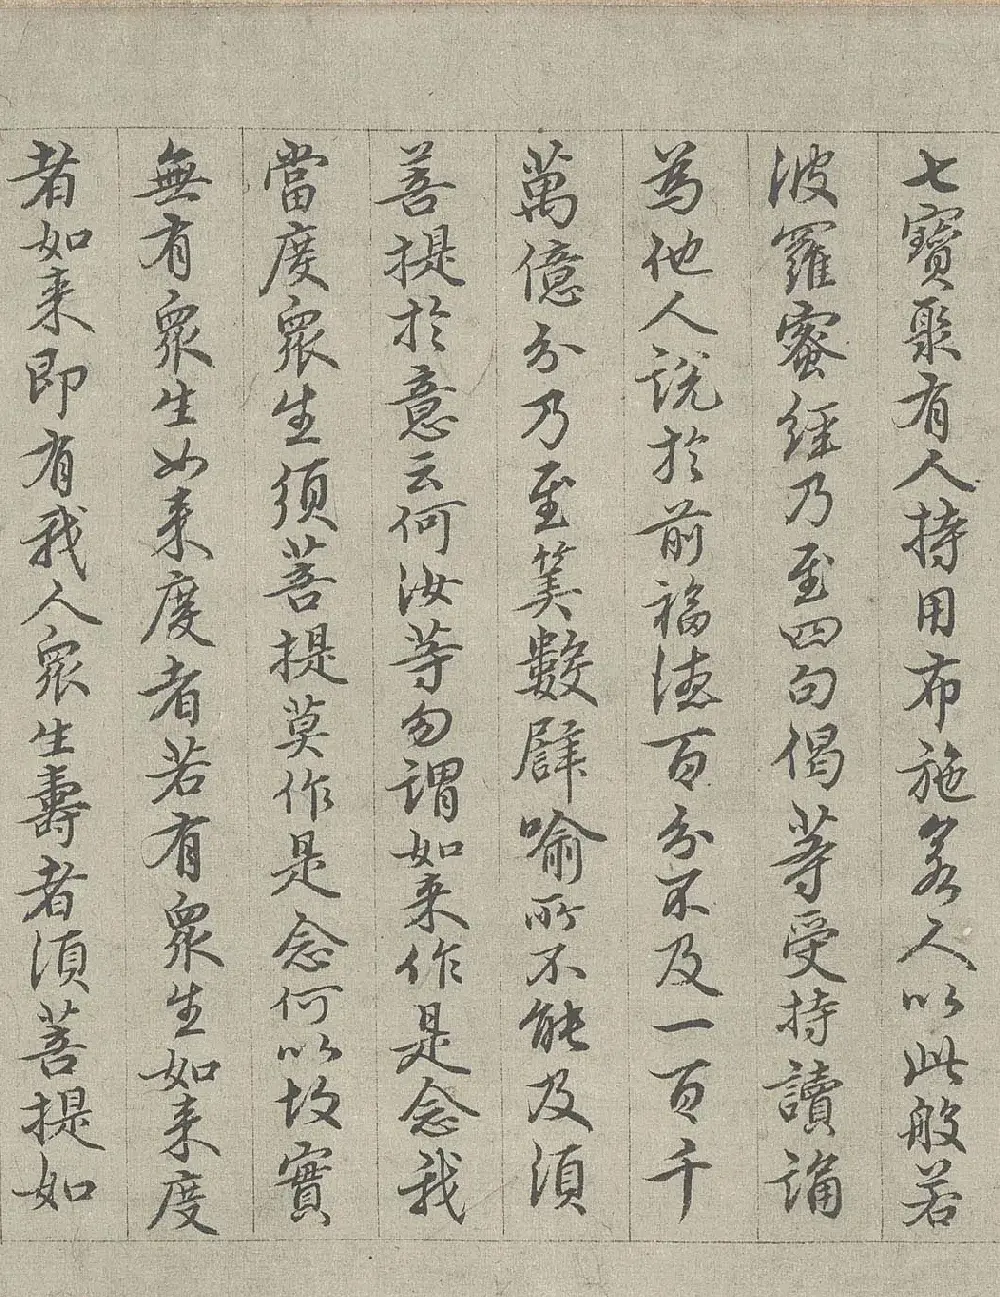 七寶聚有人持用布施若人以此般若
波羅蜜經乃至四句偈等受持讀誦
為他人說於前福德百分不及一百千
萬億分乃至筭數譬喻所不能及須
菩提於意云何汝等勿謂如来作是念我
當度衆生須菩提莫作是念何以故實
無有衆生如来度者若有衆生如来度
者如来即有我人衆生壽者須菩提如